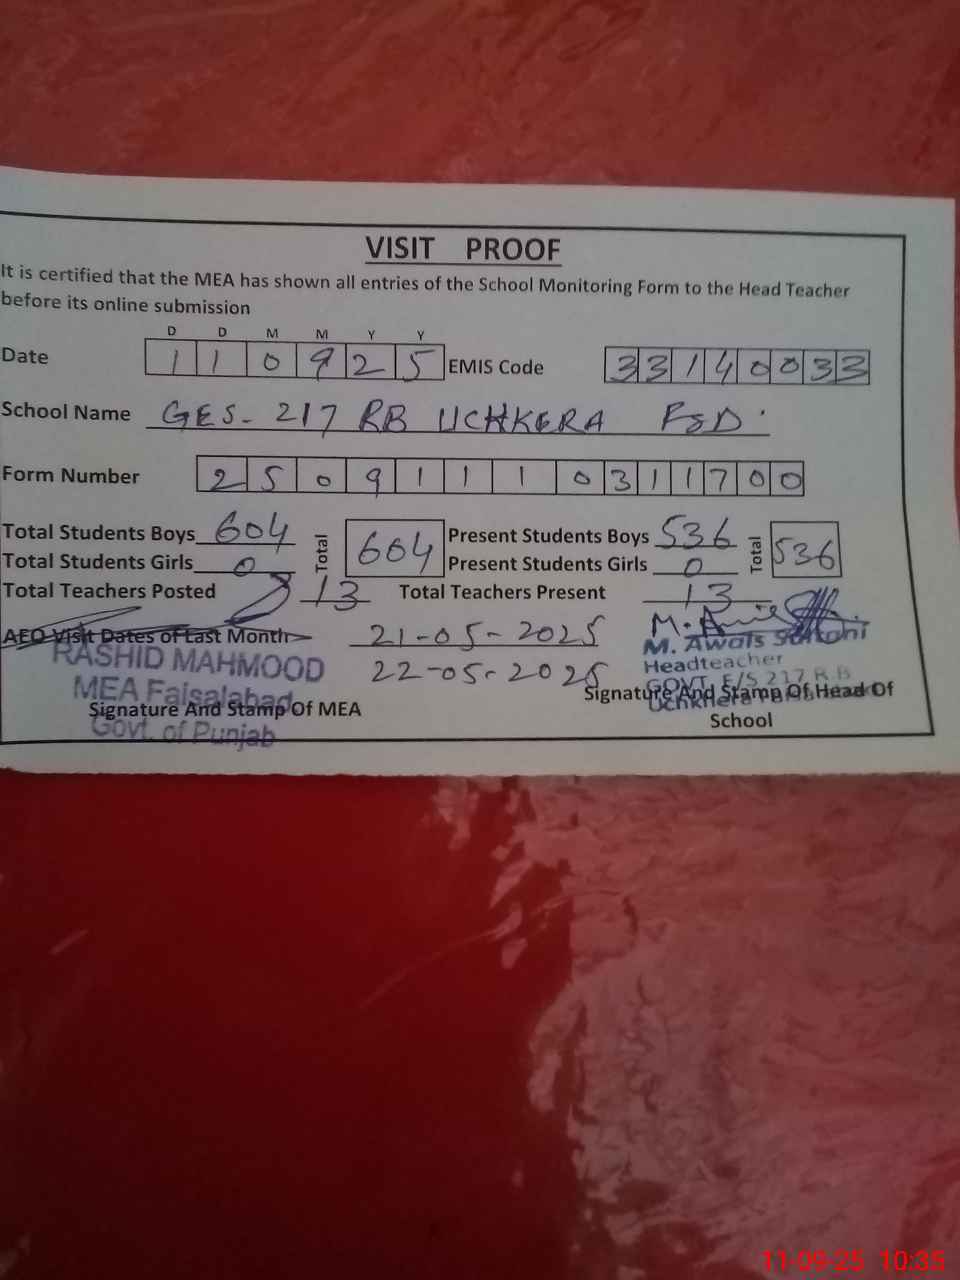 VISIT PROOF
It is certified that the MEA has shown all entries of the School Monitoring Form to the Head Teacher
before its online submission
D D M M Y Y
Date 1 1 0 9 2 5 EMIS Code 3 3 1 4 0 0 3 3
School Name GES- 217 RB UCHKERA FSD.
Form Number 2 5 0 9 1 1 1 0 3 1 1 7 0 0
Total Students Boys 604 Total 604 Present Students Boys 536 Total 536
Total Students Girls 0 Present Students Girls 0
Total Teachers Posted 13 Total Teachers Present 13
AEO Visit Dates of Last Month 21-05-2025
22-05-2025
RASHID MAHMOOD
MEA Faisalabad
Govt. of Punjab
Signature And Stamp Of MEA
M. Awais
Headteacher
GOVT. E/S 217 R.B
Uchkhera
Signature And Stamp Of Head Of
School
11-09-25 10:35